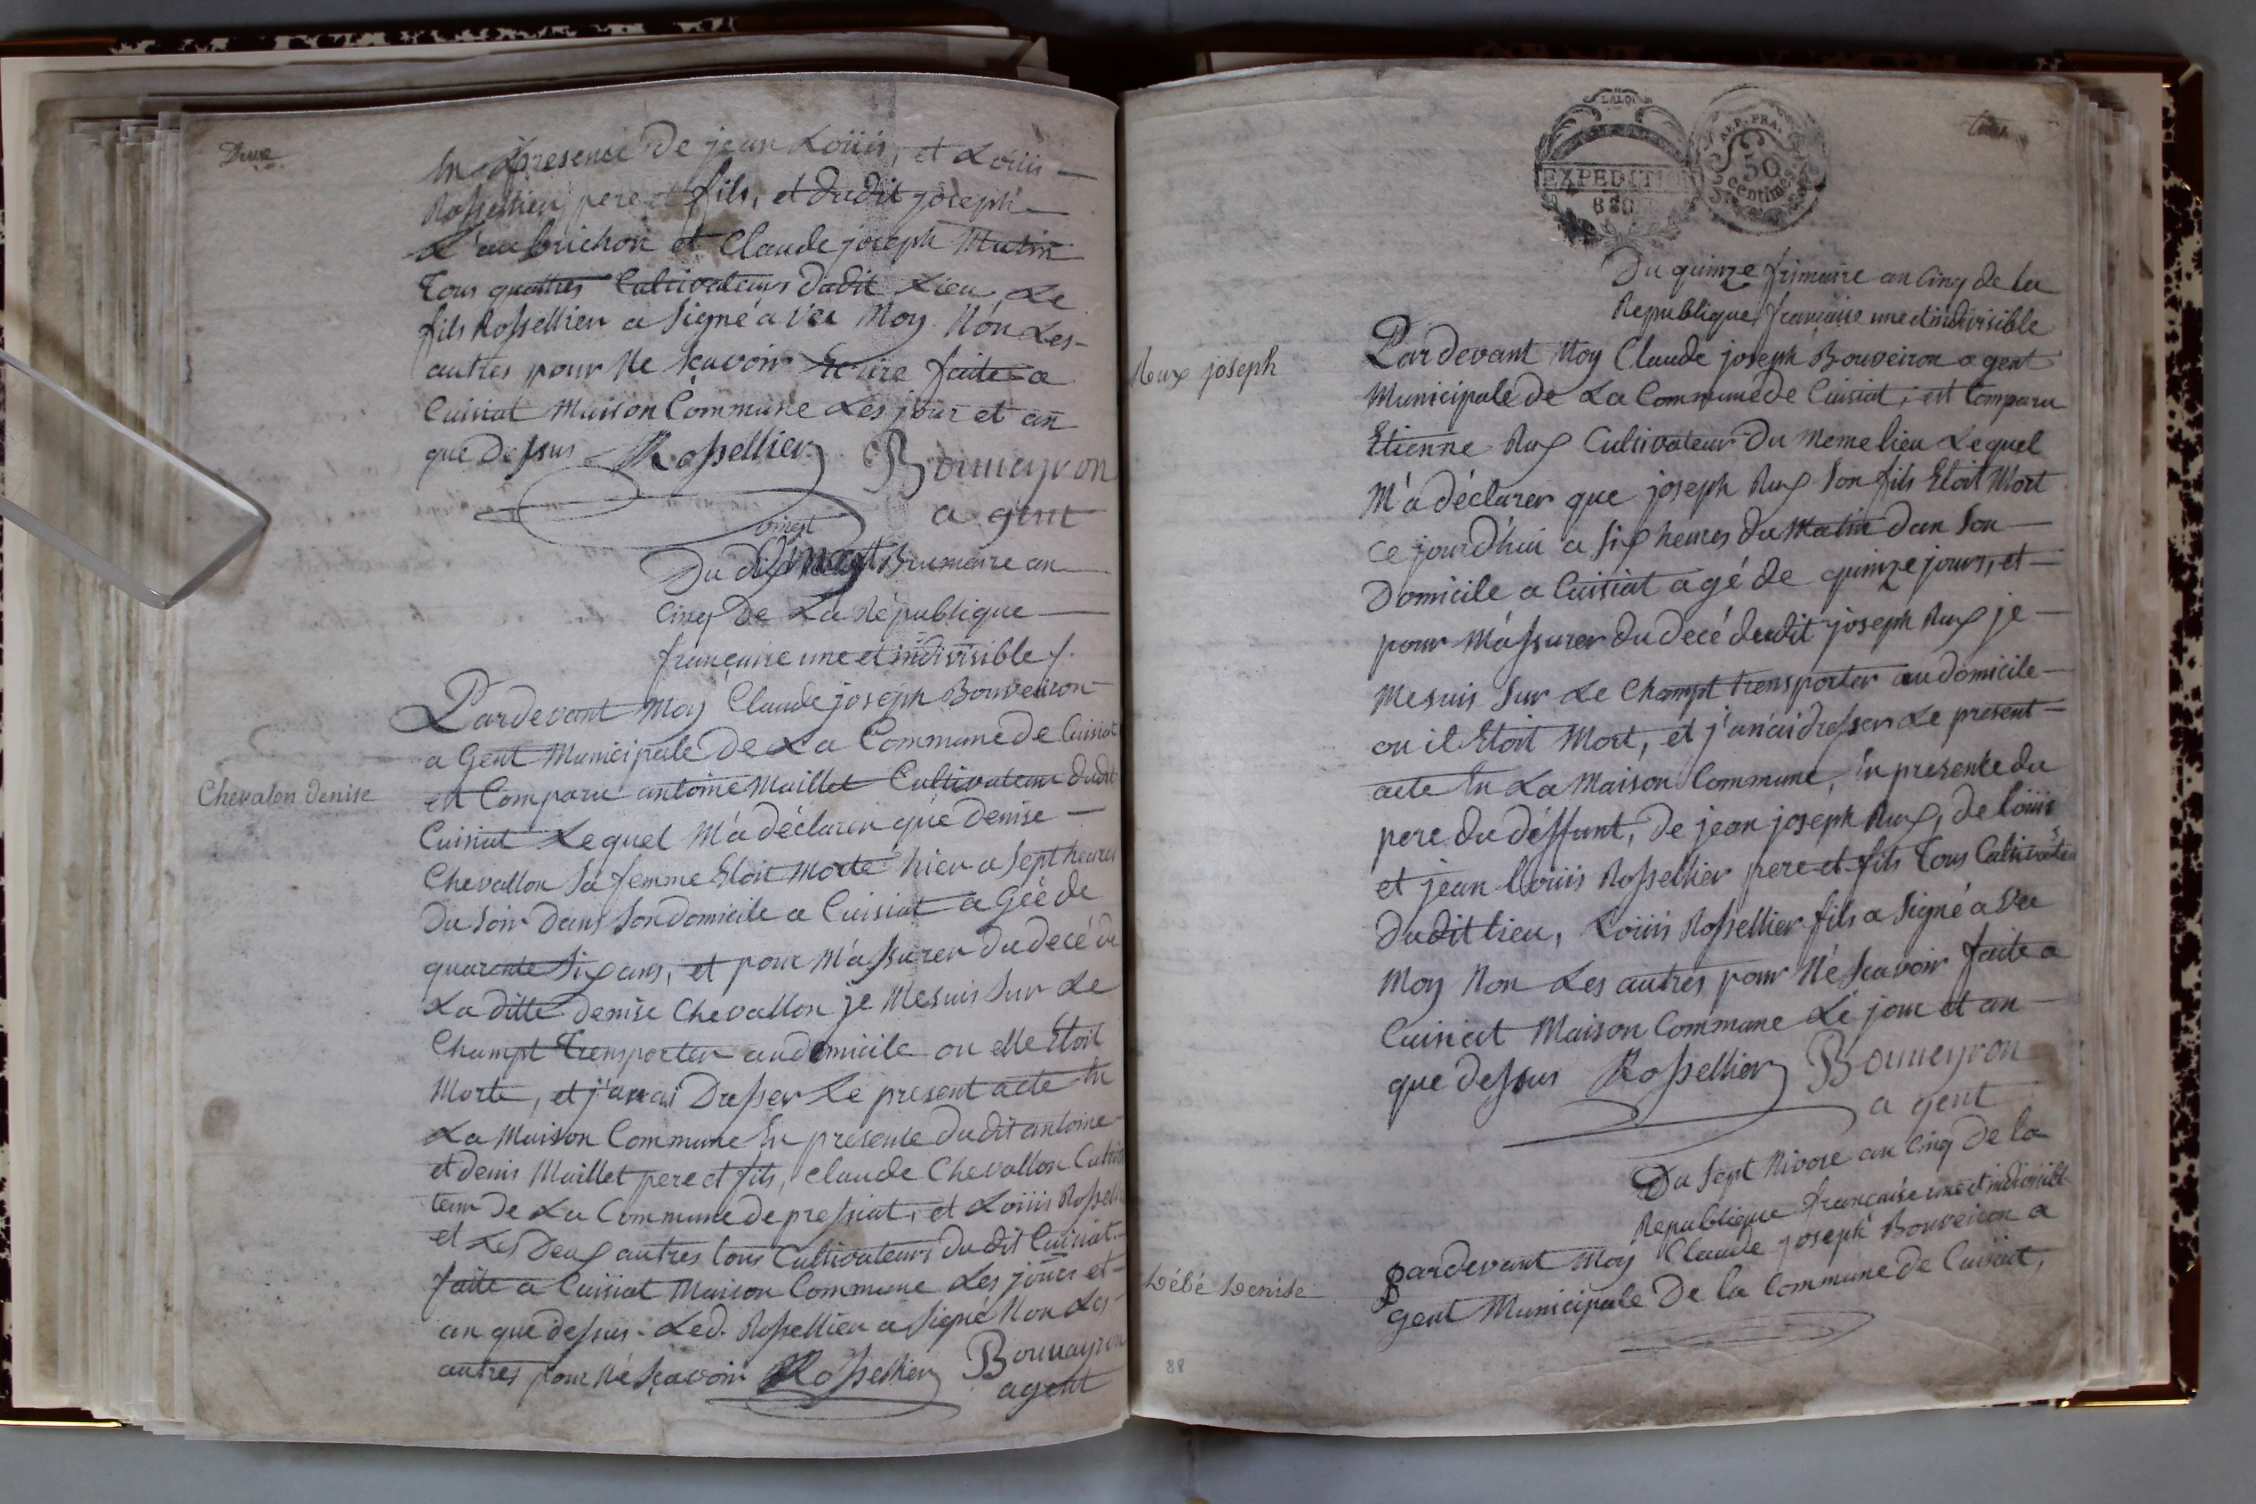 Deux
En presence De jean Loüis, et Loüis
Rossellier pere et fils, et dudit joseph
L'aubrichon et Claude joseph Mutin
Tous quattres Cultivateurs dudit Lieu, Le
fils Rossellier a signé a vec Moy Non Les
autres pour Ne Scavoir Ecrire faite a
Cuisiat Maison Commune Les jour et an
que Dessus Rossellier Bouueyron
a gent
vingt
Du Brumaire an
Cinq De La République
française une et indivisible /.
Pardevant Moy Claude joseph Bouveiron
a Gent Municipale De La Commune de Cuisiat
Chevalon denise
est Comparu antoine Maillet Cultivateur dudit
Cuisiat Lequel M'a déclarer que denise
Chevallon Sa femme Etoit Morte hier a sept heures
Du Soir Dans Son domicile a Cuisiat a Gée de
quarente Six ans, et pour M'assurer du decé de
La ditte denise Chevallon je Mesuis Sur Le
Champt Transporter audomicile ou elle Etoit
Morte, et j'an ai Dresser Le present acte En
La Maison Commune En presente dudit antoine
et denis Maillet pere et fils, Claude Chevallon Cultiva
teur De La Commune de pressiat, et Loüis Rossell
et Les Deux autres tous Cultivateurs du dit Cuisiat.
faite a Cuisiat Maison Commune Les jours et
an que dessus. Led. Rossellier a signé Non Les
autres pour Né Scavoir Rossellier Bouuayron
agent
LA LOI
EXPEDITION
REP. FRA.
50
centimes
Du quinze frimaire an Cinq de La
Republique française une et indivisible
Rux joseph
Pardevant Moy Claude joseph Bouveiron a gent
Municipale de La Commune de Cuisiat, est Comparu
Etienne Rux Cultivateur Du Meme lieu Lequel
M'a déclarer que joseph Rux Son fils Etoit Mort
Ce jourd'hui a Six heures du Matin dan Son
Domicile a Cuisiat agé de quinze jours, et
pour M'assurer du decé dudit joseph Rux je
Mesuis Sur Le Champt transporter audomicile
ou il Etoit Mort, et j'an ai dresser Le present
acte En La Maison Commune, En presente du
pere du déffunt, de jean joseph Rux, de loüis
et jean Loüis Rossellier pere et fils Tous Cultivateurs
Dudit lieu, Loüis Rossellier fils a signé a vec
Moy Non Les autres pour Né Scavoir faite a
Cuisiat Maison Commune Le jour et an
que dessus Rossellier Bouueyron
a gent
Du Sept Nivose an Cinq De la
Republique française une et indivisible
Pardevant Moy Claude joseph Bouveiron a
Débé Denise
gent Municipale De la Commune de Cuisiat,
88